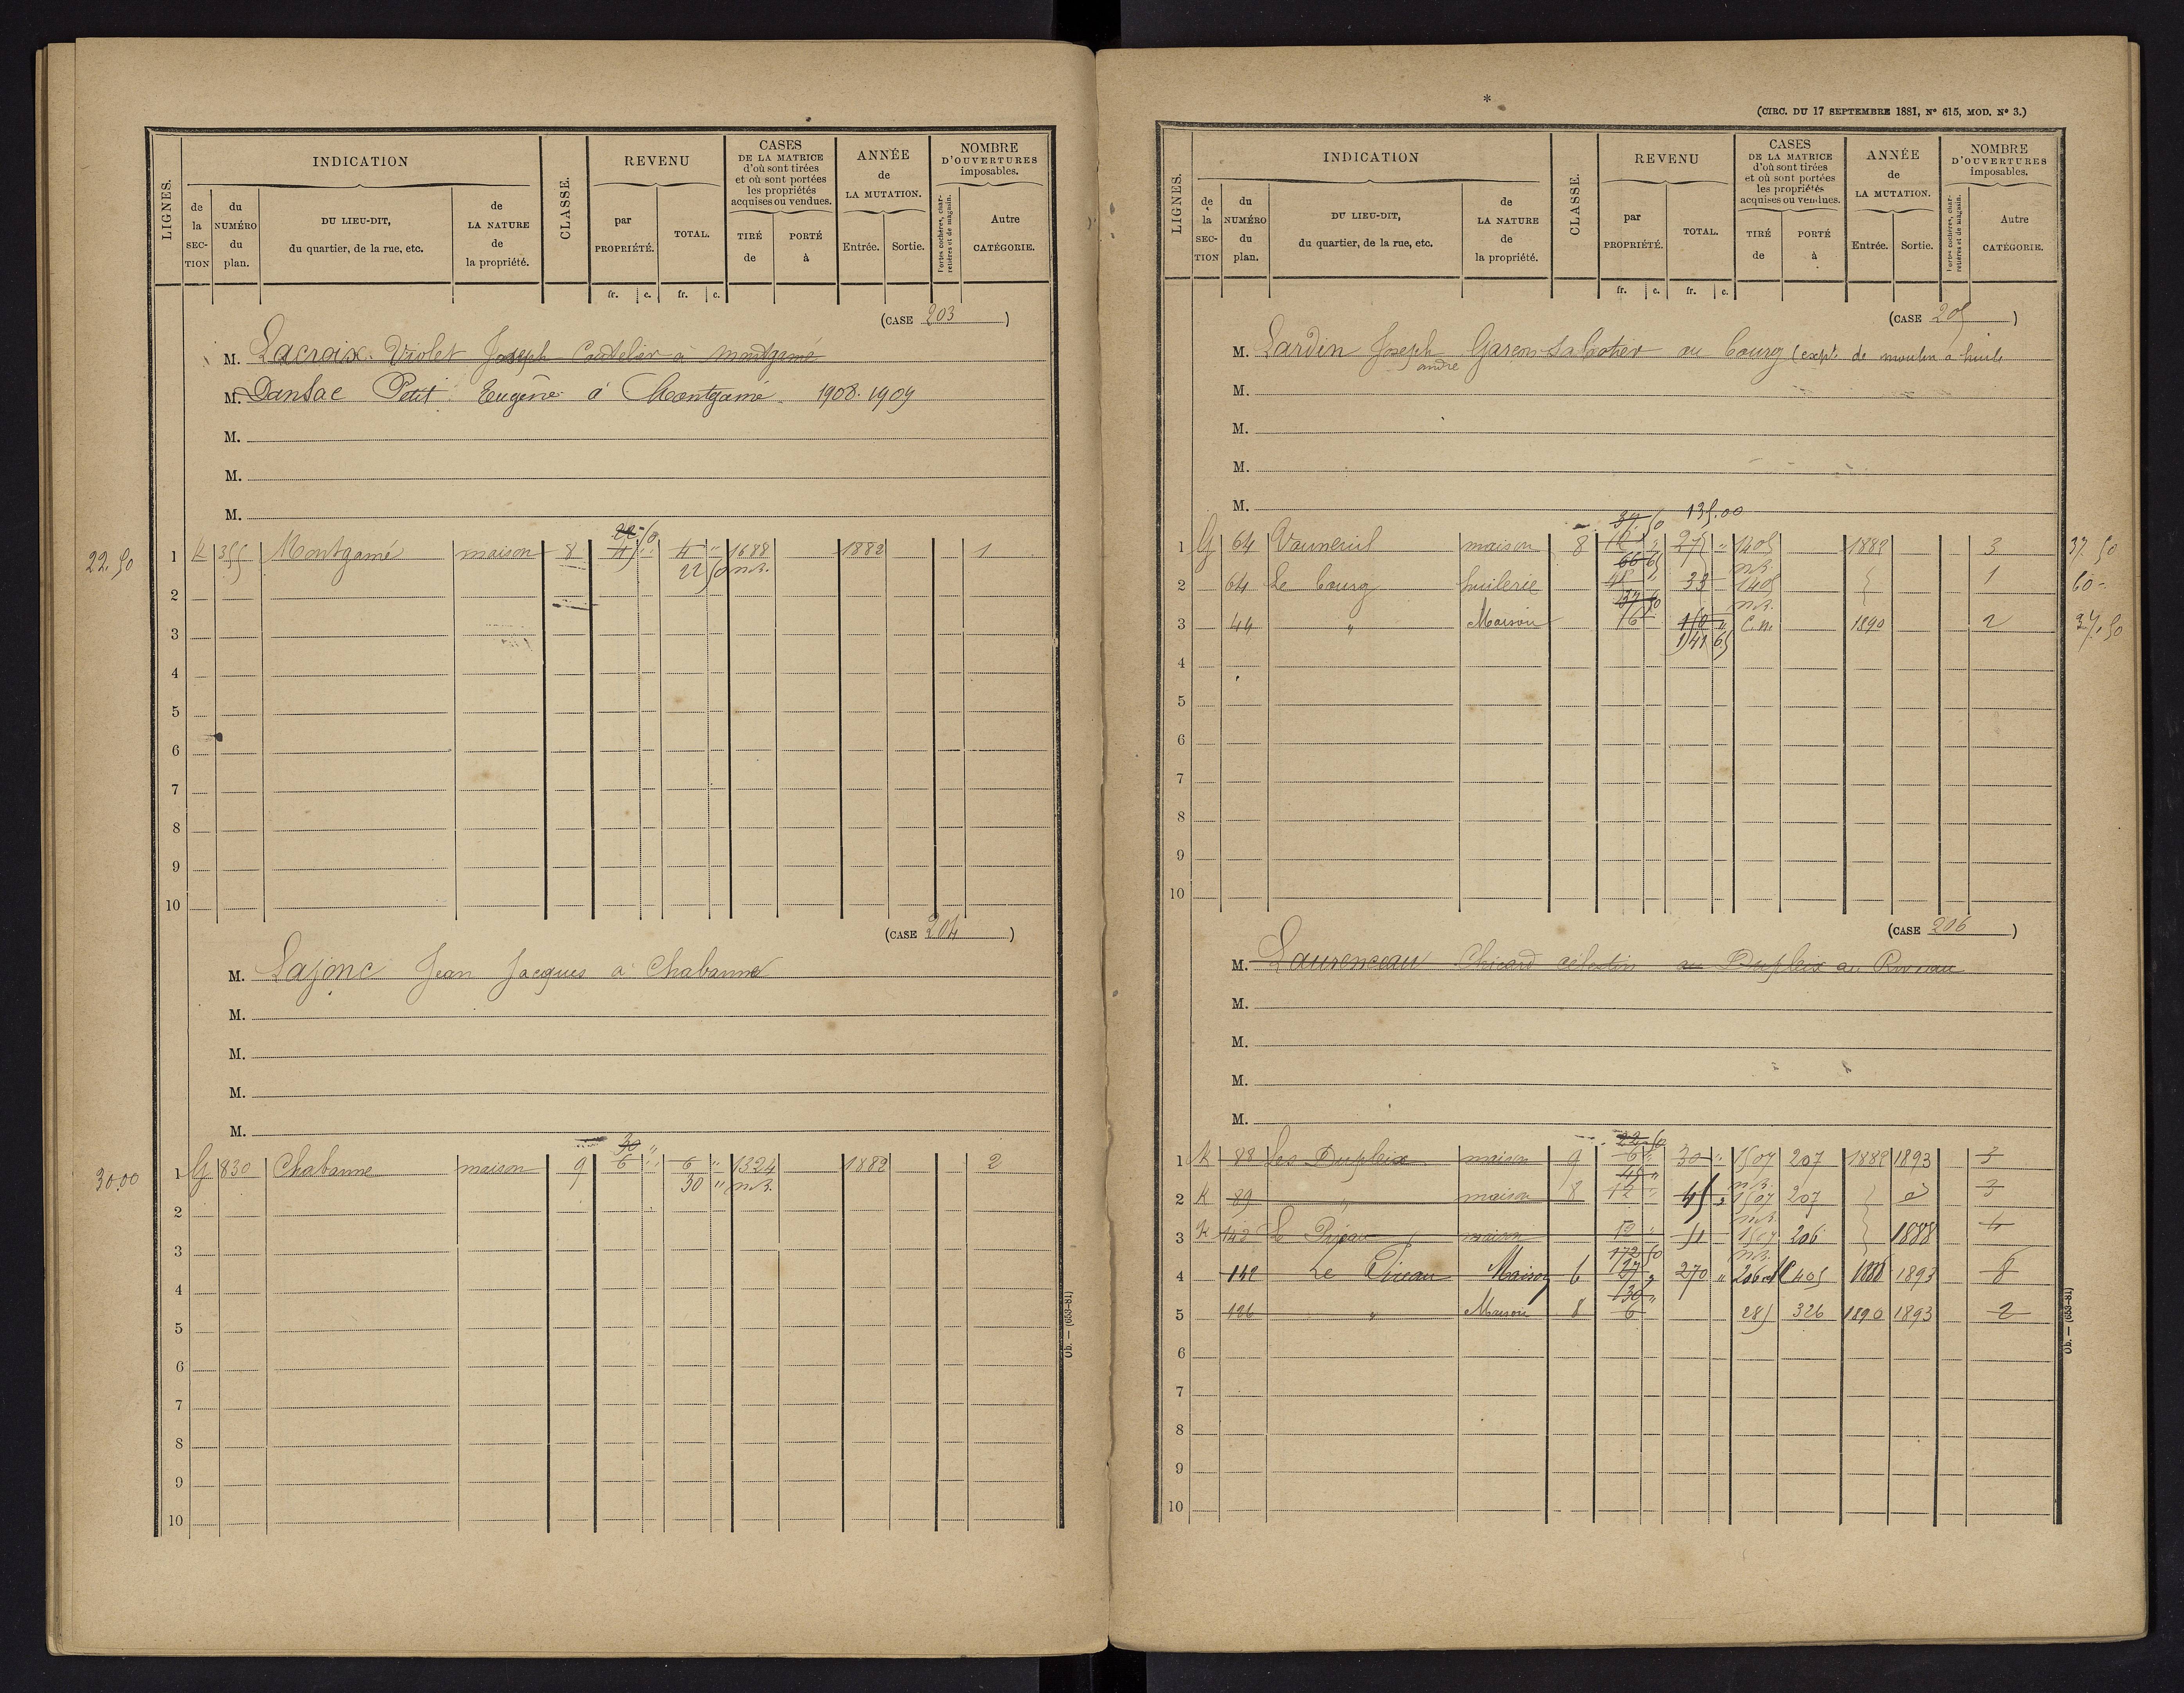 LIGNES. INDICATION CLASSE. REVENU CASES DE LA MATRICE d'où sont tirées et où sont portées les propriétés acquises ou vendues. ANNÉE de LA MUTATION. NOMBRE D'OUVERTURES imposables.
de la SECTION du NUMÉRO du plan. DU LIEU-DIT, du quartier, de la rue, etc. de LA NATURE de la propriété. par PROPRIÉTÉ. TOTAL. TIRÉ de PORTÉ à Entrée. Sortie. Portes cochères, charretières et de magasin. Autre CATÉGORIE.
fr. c. fr. c.
(CASE 203)
M. Lacroix Violet Joseph Coutelier à montgamé
M. Dansac Petit Eugène à Montgamé 1908. 1909
M.
M.
M.
22 50
22.50 1 K 355 Montgamé maison 8 4 " 4 " 1688 1882 1
22 50 m.r.
2
3
4
5
6
7
8
9
10
(CASE 204)
M. Lajonc Jean Jacques à Chabanne
M.
M.
M.
M.
30 "
30.00 1 G 830 Chabanne maison 9 6 " 6 " 1324 1882 2
30 " m.r.
2
3
4
5
6
7
8
9
10
Ob. — (653-81)
(CIRC. DU 17 SEPTEMBRE 1881, N° 615, MOD. N° 3.)
LIGNES. INDICATION CLASSE. REVENU CASES DE LA MATRICE d'où sont tirées et où sont portées les propriétés acquises ou vendues. ANNÉE de LA MUTATION. NOMBRE D'OUVERTURES imposables.
de la SECTION du NUMÉRO du plan. DU LIEU-DIT, du quartier, de la rue, etc. de LA NATURE de la propriété. par PROPRIÉTÉ. TOTAL. TIRÉ de PORTÉ à Entrée. Sortie. Portes cochères, charretières et de magasin. Autre CATÉGORIE.
fr. c. fr. c.
(CASE 205)
M. Lardin Joseph Garçon Sabotier au bourg (expt. de moulin à huile
andré
M.
M.
M.
M.
37.50 135.00
1 G 64 maison 8 " 1405 1882 3 37.50
66 65 m.r.
2 64 Le bourg huilerie 33 1405 1 60 -
37 50 m.r.
3 44 " Maison 16 C.n. 1890 2 37.50
141 65
4
5
6
7
8
9
10
(CASE 206)
M. Laurenceau Chicard célestin au Dupleix au
M.
M.
M.
M.
22 50
1 K 88 Les Dupleix maison 9 6 " 30 " 1507 207 1882 1893 3
45 " m.r.
2 K 89 " maison 8 12 " 45 " 1507 207 3
m.r.
3 K 142 Le maison 12 " 1507 206 1888 4
172 50 m.r.
4 142 Le Maison 6 27 270 " 206 405 1888 1893 8
130 "
5 126 " Maison 8 6 285 326 1890 1893 2
6
7
8
9
10
Ob. — (653-81)